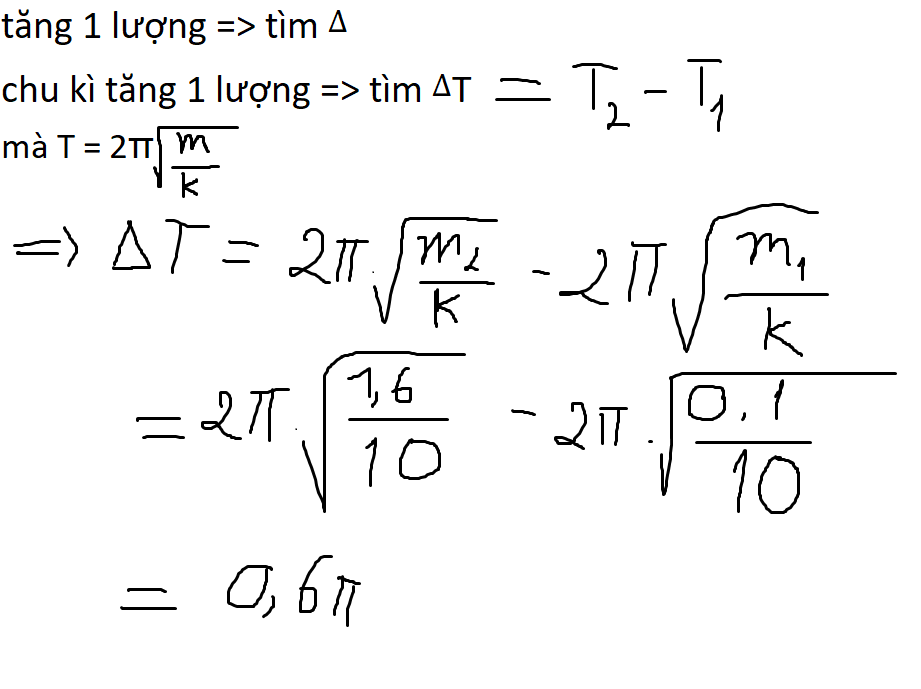 tăng 1 lượng => tìm Δ
chu kì tăng 1 lượng => tìm ΔT = T₂ - T₁
mà T = 2π√(m/k)
=> ΔT = 2π.√(m₂/k) - 2π√(m₁/k)
= 2π.√(1,6/10) - 2π.√(0,1/10)
= 0,6π